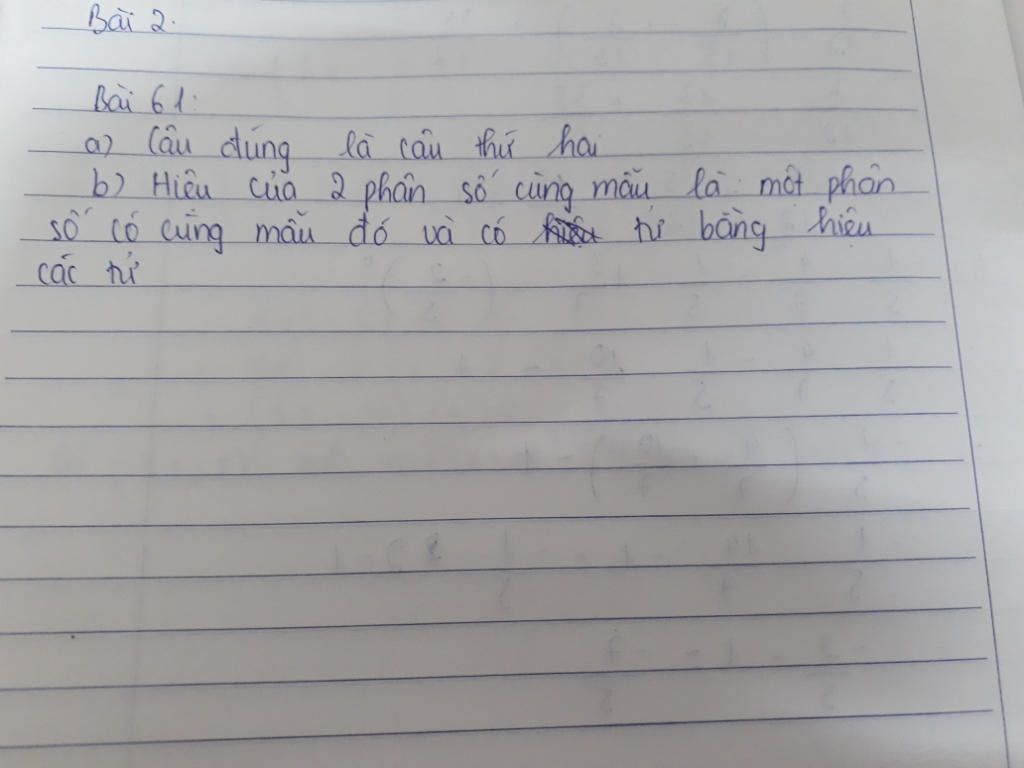 Bài 2.
Bài 61:
a) Câu đúng là câu thứ hai
b) Hiệu của 2 phân số cùng mẫu là một phân
số có cùng mẫu đó và có hiệu tử bằng hiệu
các tử